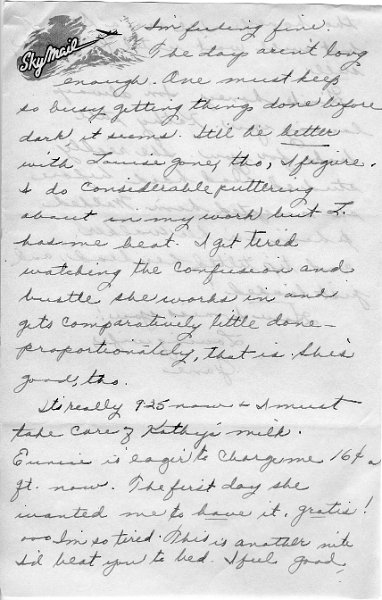 Sky Mail
I'm feeling fine.
The days aren't long
enough. One must keep
so busy getting things done before
dark, it seems. Still be better
with Louise gone, tho, I figure.
I do considerable puttering
about in my work but L.
has me beat. I get tired
watching the confusion and
bustle she works in and
gets comparatively little done –
proportionately, that is. She's
good, tho.
It's really 925 now & I must
take care of Kathy's milk.
Eunice is eager to charge me 16¢ a
ft. now. The first day she
wanted me to have it, gratis!
ooo I'm so tired. This is another nite
I'd beat you to bed. I feel good,